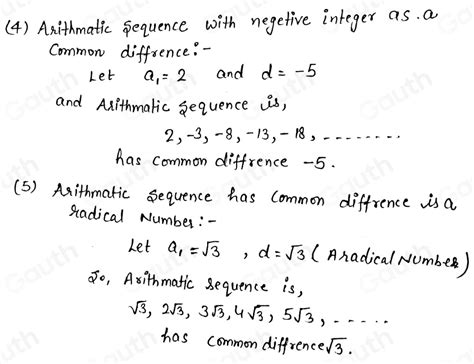 (4) Arithmatic sequence with negetive integer as a
Common diffrence:-
Let a₁ = 2 and d = -5
and Arithmatic sequence is,
2, -3, -8, -13, -18, --------
has common diffrence -5.
(5) Arithmatic sequence has Common diffrence is a
radical Number:-
Let a₁ = √3 , d = √3 ( A radical Number)
So, Arithmatic sequence is,
√3, 2√3, 3√3, 4√3, 5√3, ------
has common diffrence √3.